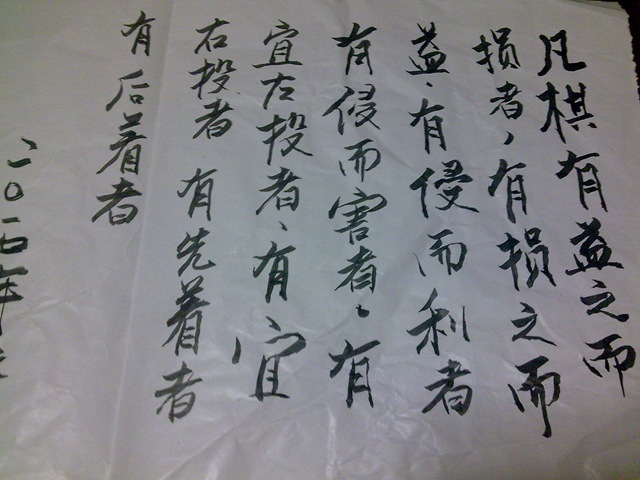 凡棋有益之而
损者,有损之而
益、有侵而利者
有侵而害者、有
宜左投者、有宜
右投者 有先着者
有后着者
二〇一 年